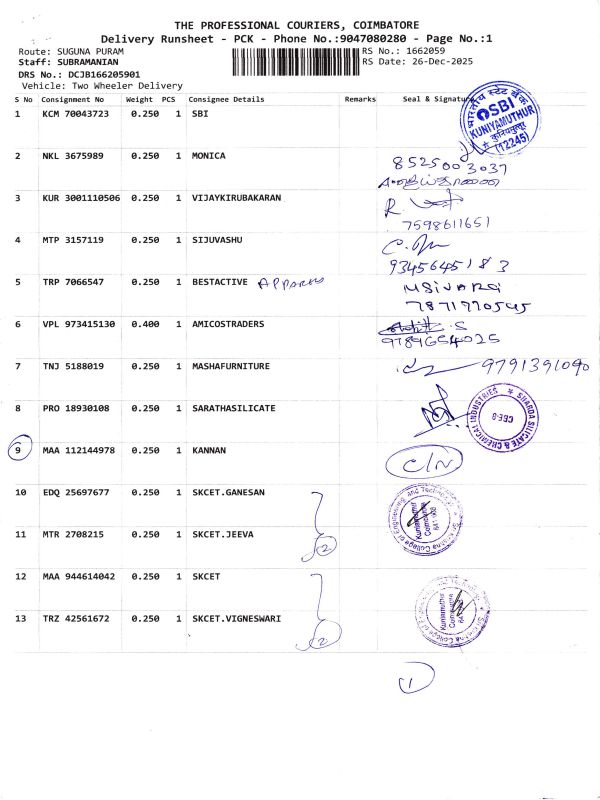 THE PROFESSIONAL COURIERS, COIMBATORE
Delivery Runsheet - PCK - Phone No.:9047080280 - Page No.:1
Route: SUGUNA PURAM RS No.: 1662059
Staff: SUBRAMANIAN RS Date: 26-Dec-2025
DRS No.: DCJB166205901
Vehicle: Two Wheeler Delivery
S No Consignment No Weight PCS Consignee Details Remarks Seal & Signature
1 KCM 70043723 0.250 1 SBI
भारतीय स्टेट बैंक
SBI
KUNIYAMUTHUR
(12245)
2 NKL 3675989 0.250 1 MONICA
8525003037
3 KUR 3001110506 0.250 1 VIJAYKIRUBAKARAN
7598611651
4 MTP 3157119 0.250 1 SIJUVASHU
9345645183
5 TRP 7066547 0.250 1 BESTACTIVE
7871770545
6 VPL 973415130 0.400 1 AMICOSTRADERS
9789654025
7 TNJ 5188019 0.250 1 MASHAFURNITURE 9791391090
8 PRO 18930108 0.250 1 SARATHASILICATE
SHARDA SILICATE & CHEMICAL INDUSTRIES
CBE-8
9 MAA 112144978 0.250 1 KANNAN
C/N
10 EDQ 25697677 0.250 1 SKCET.GANESAN
Sri Krishna College of Engineering and Technology
Kuniamuthur
Coimbatore
641 008
11 MTR 2708215 0.250 1 SKCET.JEEVA
2
12 MAA 944614042 0.250 1 SKCET
Sri Krishna College of Engineering and Technology
Kuniamuthur
Coimbatore
641 008
13 TRZ 42561672 0.250 1 SKCET.VIGNESWARI
2
1